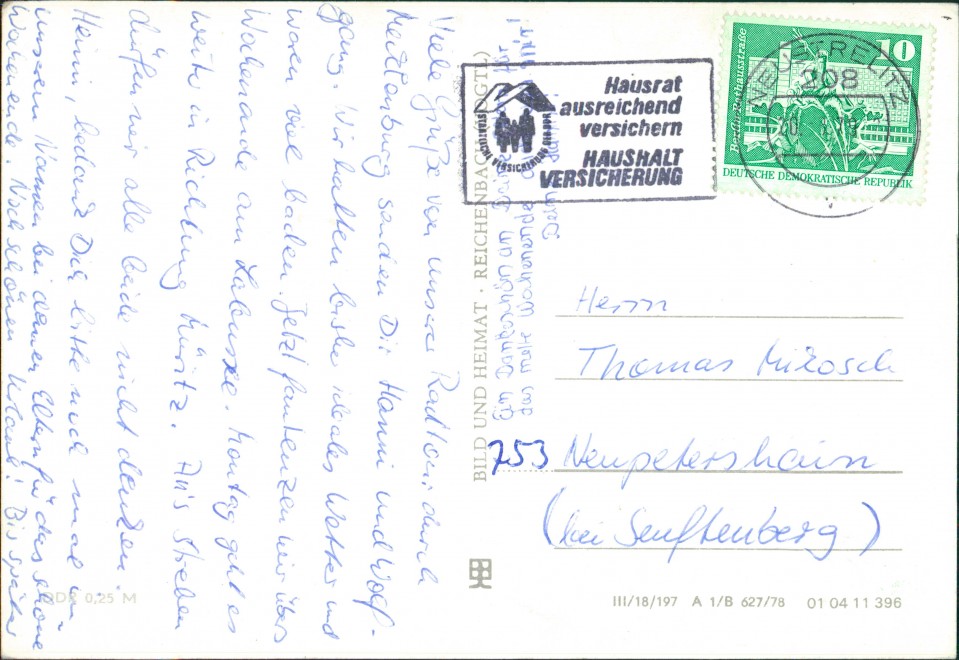 Viele Grüße von unserer Radtour durch
Mecklenburg senden Dir Hanni und Wolf-
gang. Wir hatten bisher ideales Wetter und
waren viel baden. Jetzt faulenzen wir übers
Wochenende am Labussee. Montag geht es
weiter in Richtung Müritz. An's Streben
dürfen wir alle beide nicht denken.
Henni, bedank Dich bitte noch mal in
unserem Namen bei deinen Eltern für das schöne
Wochenende. Noch schönen Urlaub! Bis später
Ein Dankeschön am
das nette Wochenende
BILD UND HEIMAT · REICHENBACH (VOGTL)
Hausrat
ausreichend
versichern
HAUSHALT
VERSICHERUNG
STAATLICHE VERSICHERUNG DER DDR
NEUSTRELITZ
208
10
Berlin, Rathausstraße
DEUTSCHE DEMOKRATISCHE REPUBLIK
Herrn
Thomas Mikosch
753 Neupetershain
(bei Senftenberg)
0,25 M
III/18/197 A 1/B 627/78 01 04 11 396